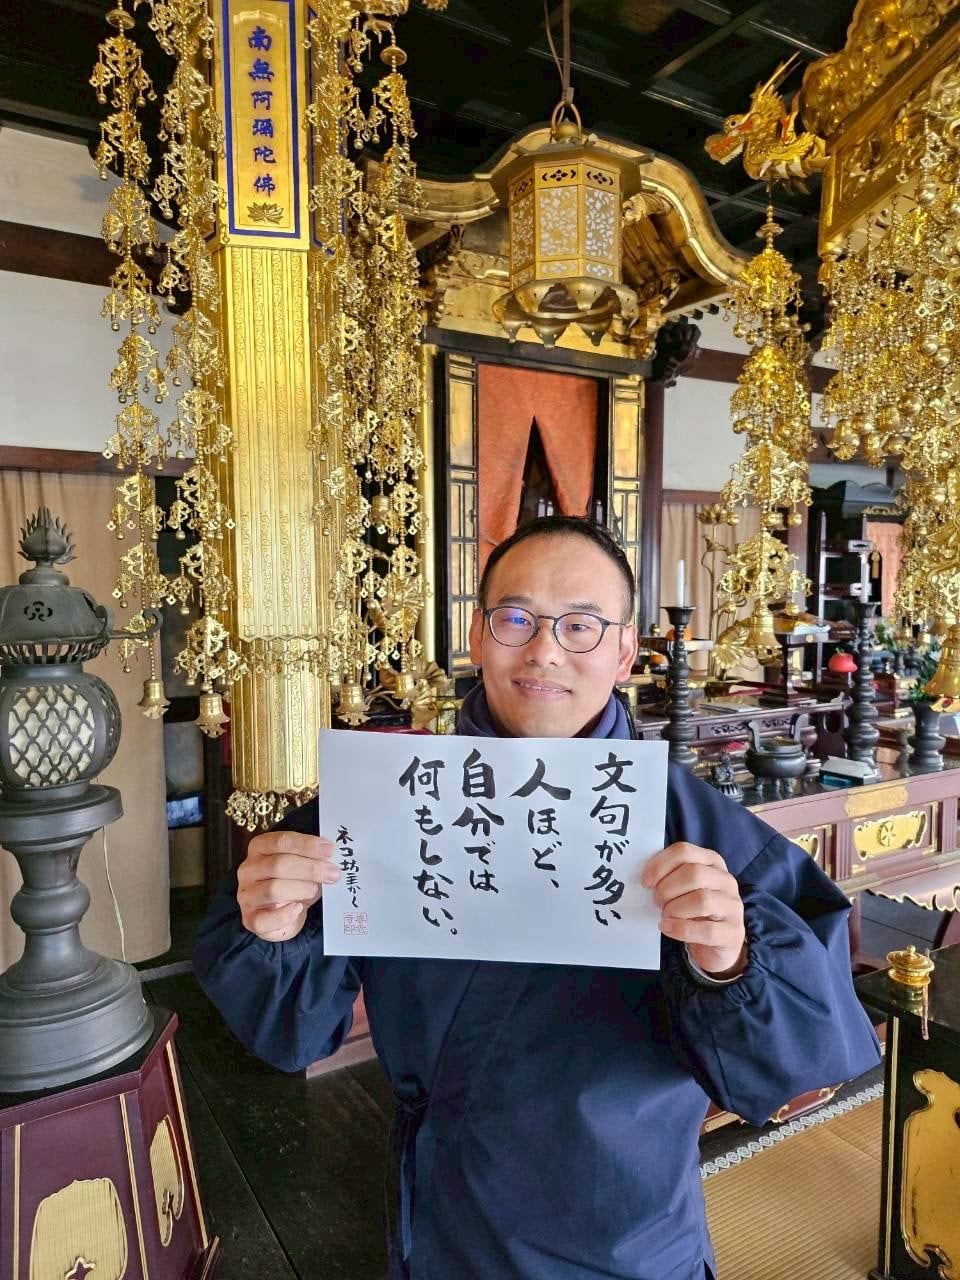 南無阿彌陀佛
文句が多い
人ほど、
自分では
何もしない。
ネコ坊主かく
専念
寺印